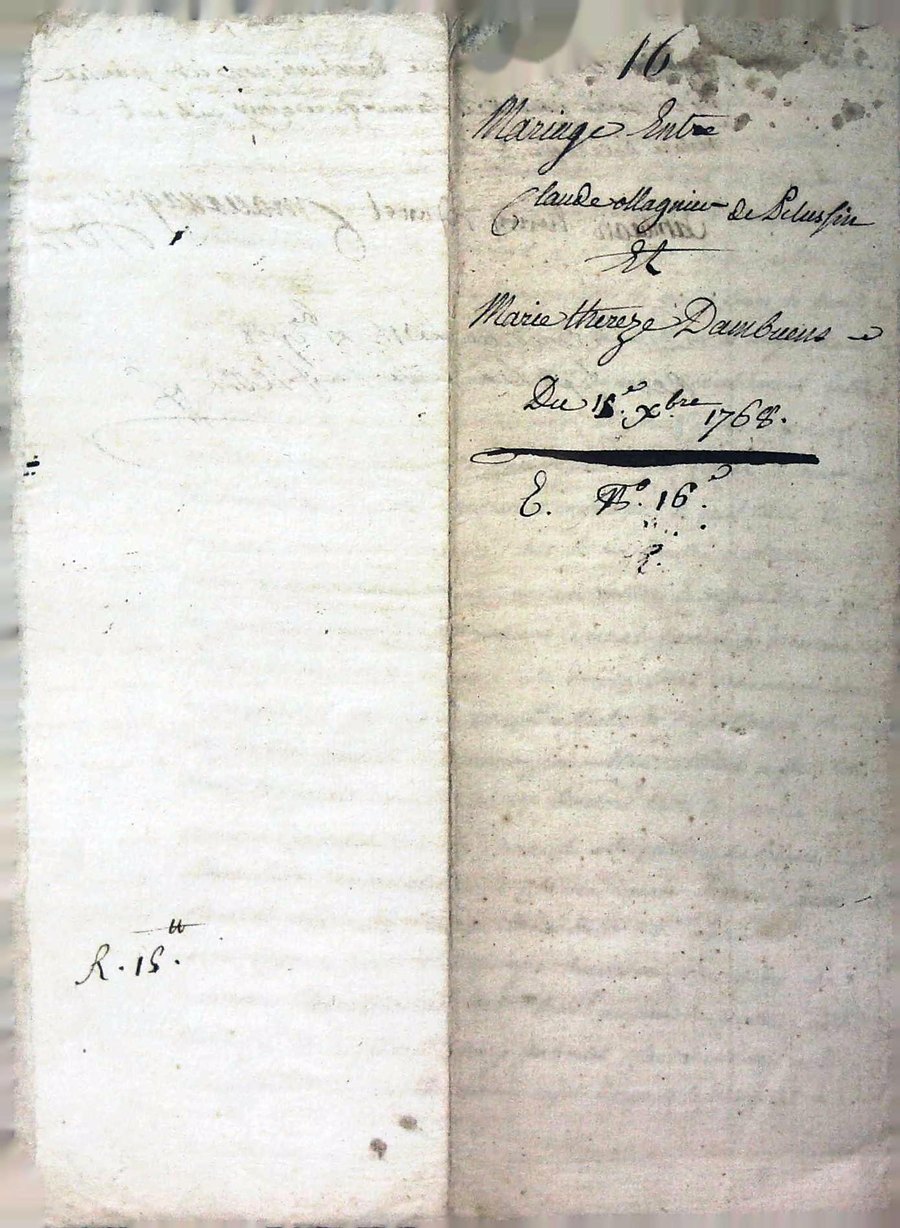 16
Mariage Entre
Claude Magnier de Pelussin
Et
Marie thereze Dambuens
Du 15.e Xbre 1768.
E. No. 16.e
R. 15.tt